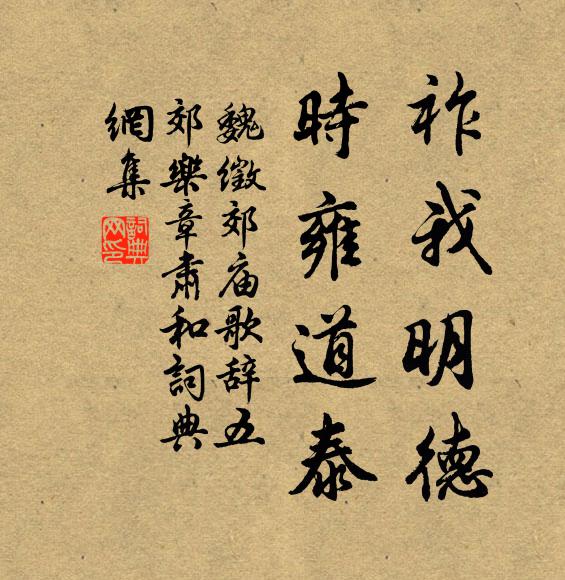 祚我明德
時雍道泰
魏徵郊庙歌辞五
郊樂章肅和詞典
網集
詞典網印